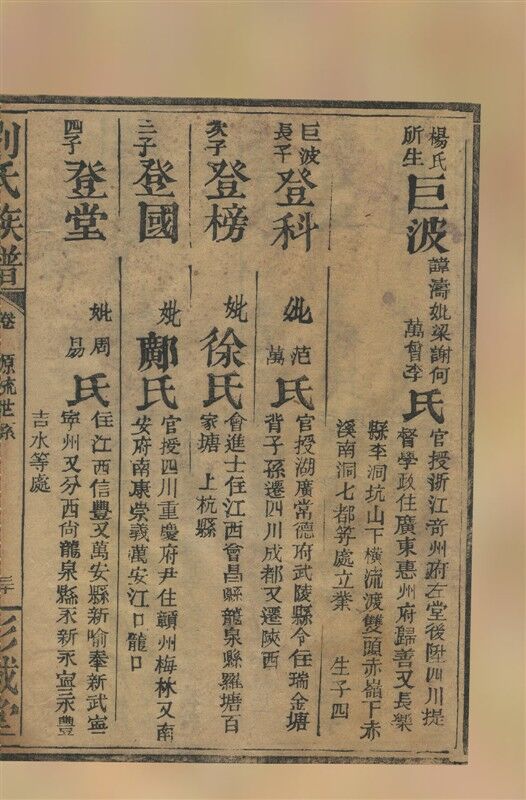 楊氏所生
巨波
諱濤妣梁謝何萬曾李
氏
官授浙江府左堂後陞四川提
督學政住廣東惠州府歸善又長樂
縣李洞坑山下橫流渡雙頭赤嶺下赤
溪南洞七都等處立業 生子四
巨波長子
登科
妣范萬氏
官授湖廣常德府武陵縣令住瑞金塘
背子孫遷四川成都又遷陝西
次子
登榜
妣徐氏
會進士住江西會昌縣龍泉縣羅塘百
家塘 上杭縣
三子
登國
妣鄺氏
官授四川重慶府尹住贛州梅林又南
安府南康崇義萬安江口龍口
四子
登堂
妣周易氏
住江西信豐又萬安縣新喻奉新武寧
寧州又分西尚龍泉縣永新永寧永豐
吉水等處
劉氏族譜
卷 源流世系
彭城堂